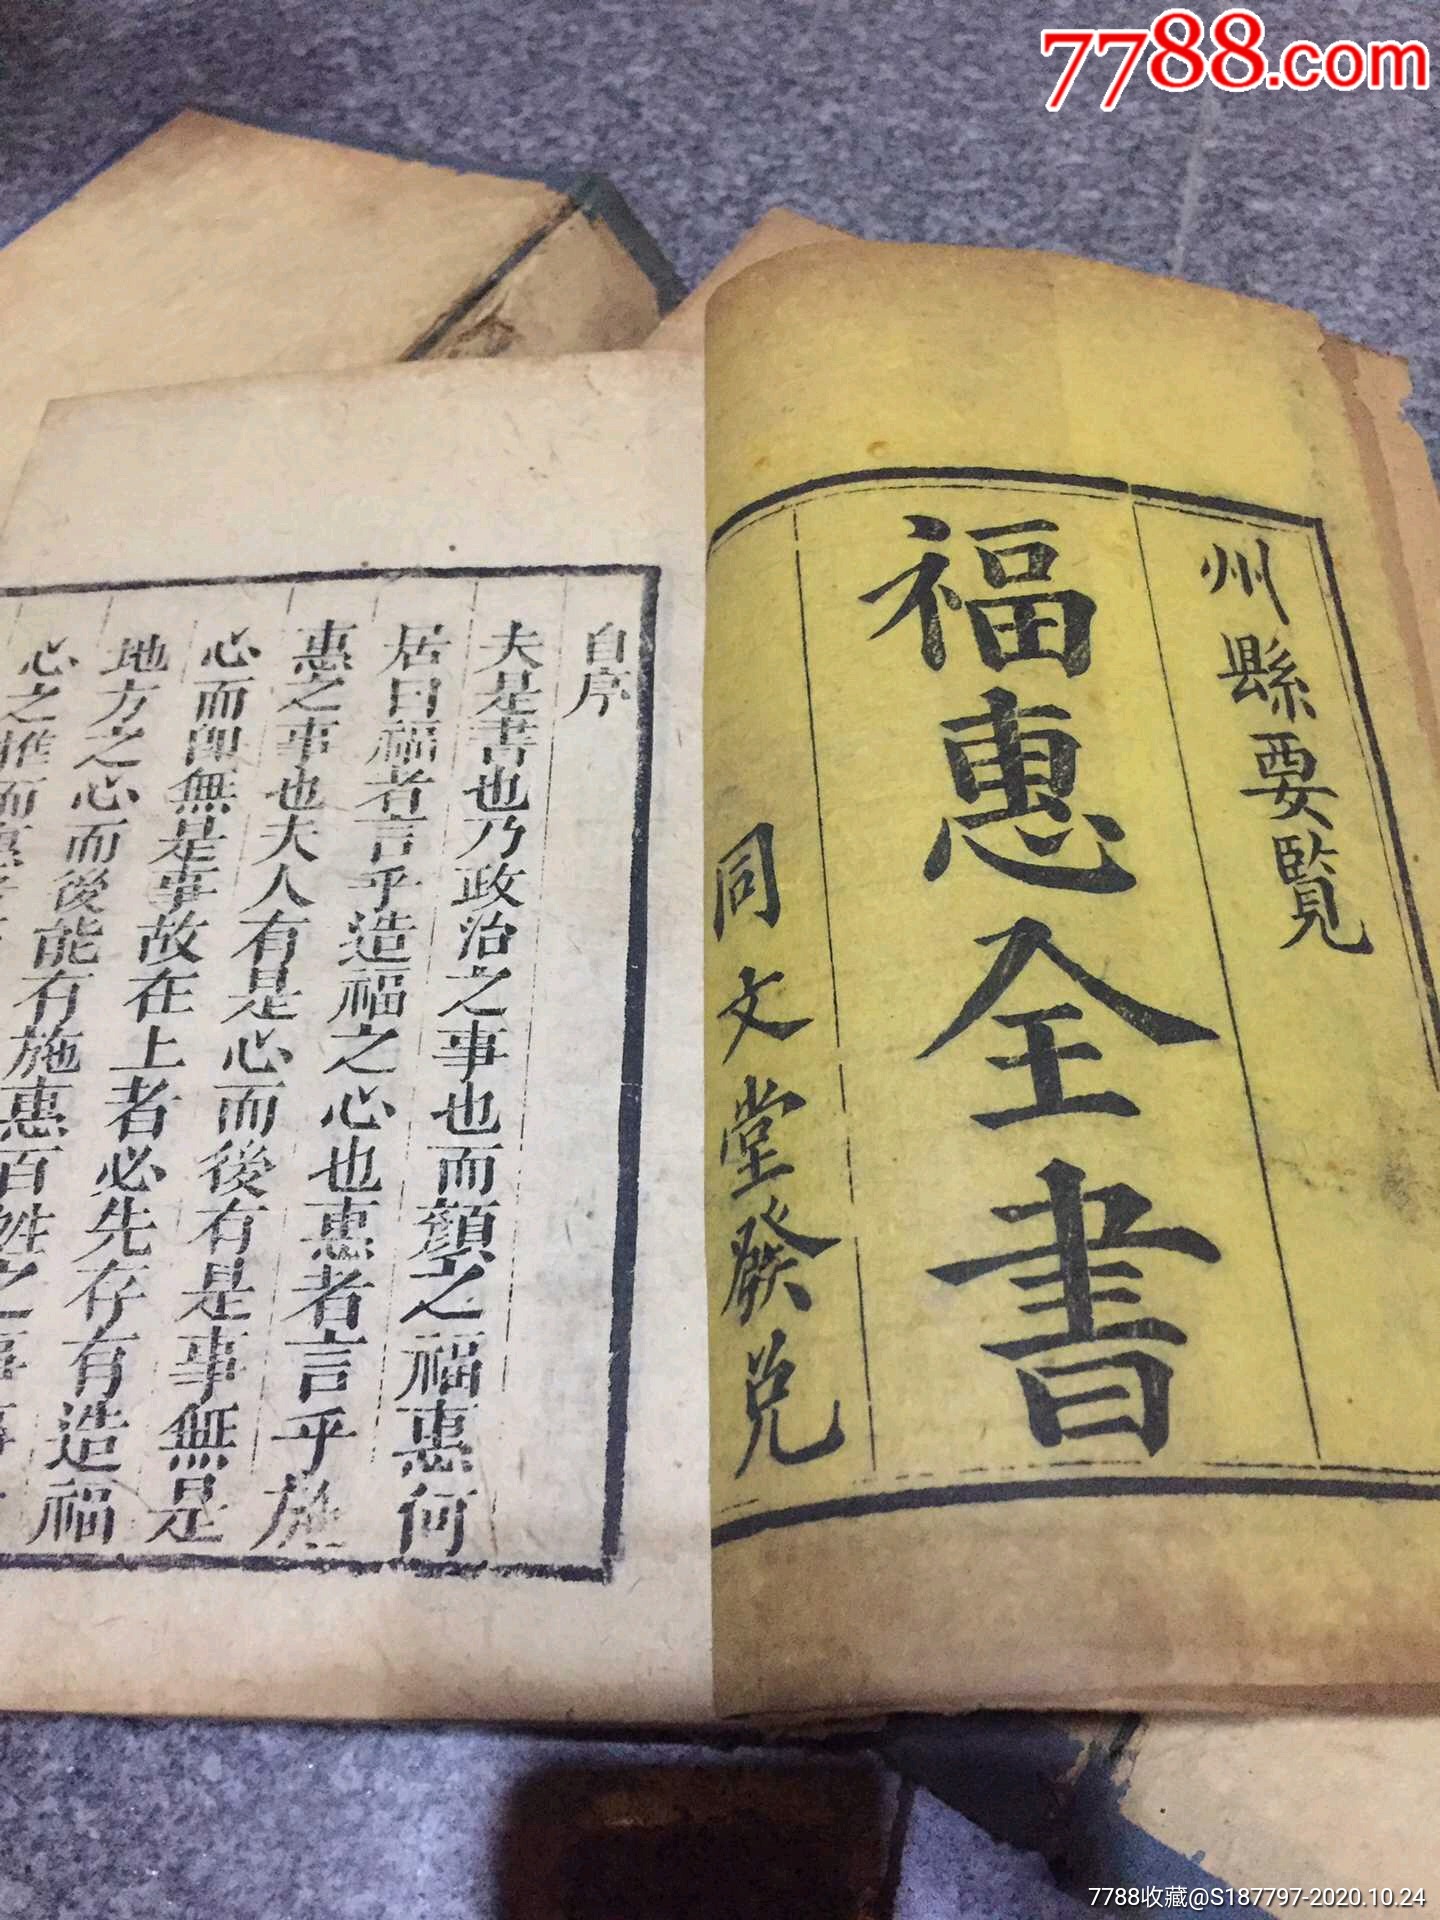 7788.com
州縣要覽
福惠全書
同文堂發兌
自序
夫是書也乃政治之事也而顏之福惠何
居曰福者言乎造福之心也惠者言乎施
惠之事也夫人有是心而後有是事無是
心而卽無是事故在上者必先存有造福
地方之心而後能有施惠百姓之事
心之推而惠
7788收藏@S187797-2020.10.24